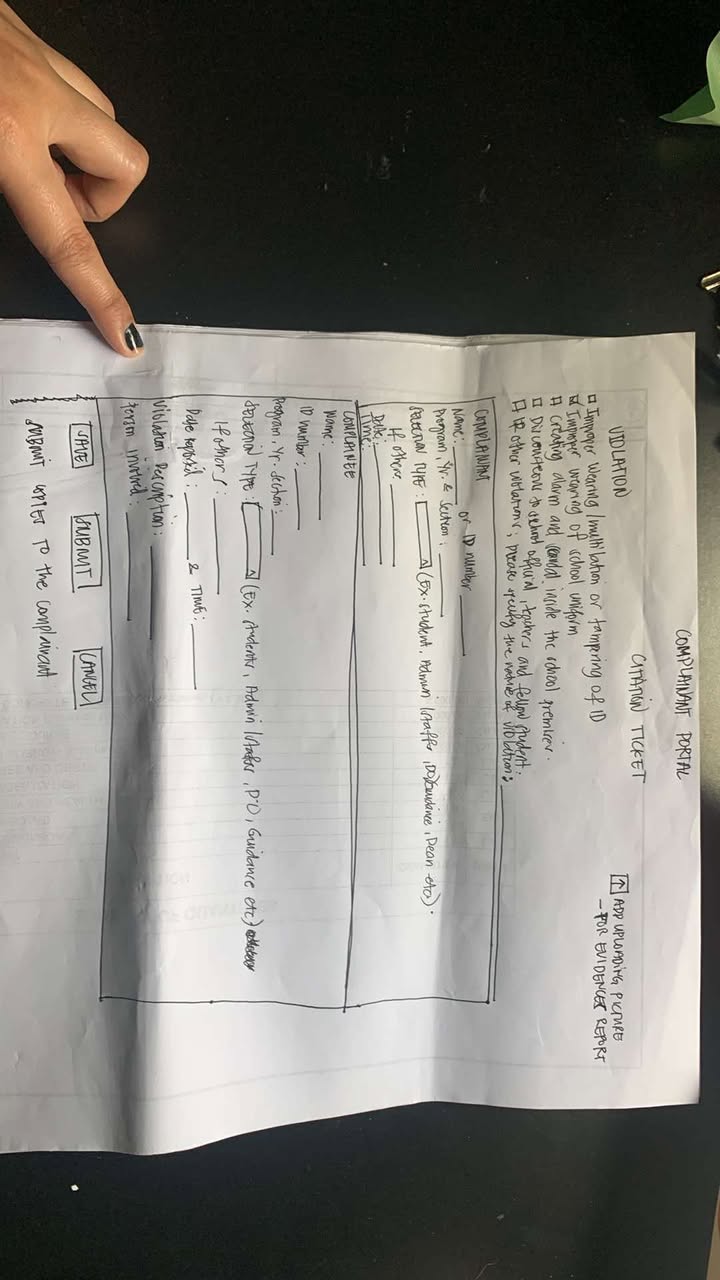 COMPLAINANT PORTAL
CITATION TICKET
VIOLATION
ADD UPLOADING PICTURE
- FOR EVIDENCES REPORT
Improper Wearing /multilation or tampering of ID
Improper wearing of school uniform
Creating alarm and scandal inside the school premises.
Discourteous to school official, teachers and fellow student.
If other violations, please specify the nature of violation:
COMPLAINANT
Name: or ID number
Program, Yr. & Section.
SELECTION TYPE: (Ex. student, Admin /staffs, DO/Guidance, Dean etc).
If others
Date:
Time:
COMPLAINEE
Name:
ID number:
Program, Yr. Section:
SELECTION TYPE: (Ex. students, Admin /staffs, DO, Guidance etc)
If others:
Date Reported: & TIME:
Violation Description:
Person involved:
SAVE SUBMIT CANCEL
SUBMIT COPIES TO the complainant